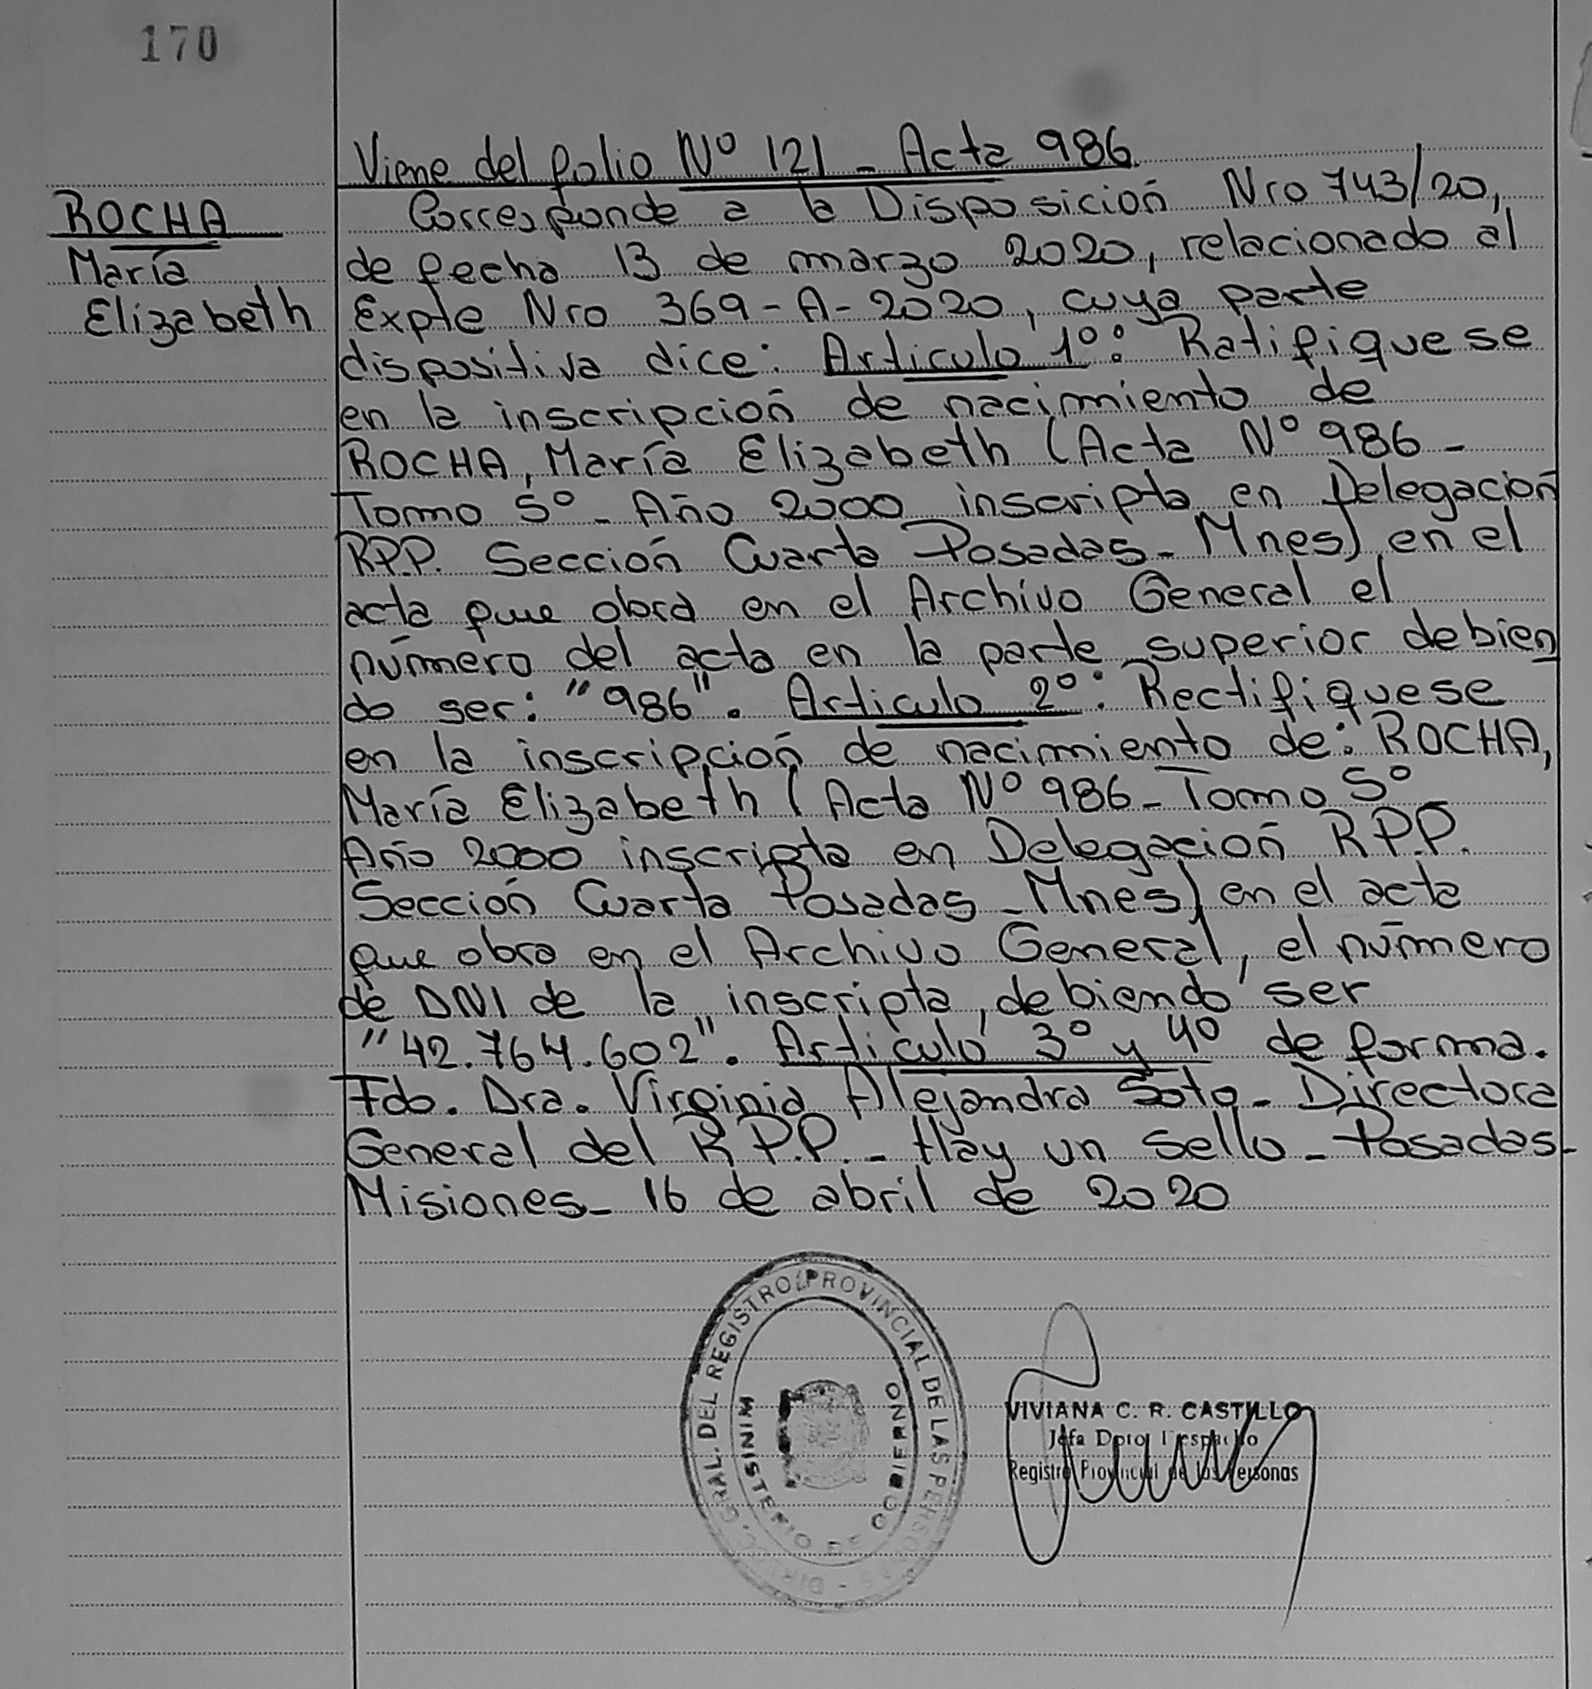 170
Viene del folio Nº 121 - Acta 986
ROCHA
María
Elizabeth
Corresponde a la Disposición Nro 743/20,
de fecha 13 de marzo 2020, relacionado al
Expte Nro 369-A-2020, cuya parte
dispositiva dice: Articulo 1º: Ratifiquese
en la inscripción de nacimiento de
ROCHA, María Elizabeth (Acta Nº 986 -
Tomo 5º - Año 2000 inscripta en Delegación
R.P.P. Sección Cuarta Posadas - Mnes) en el
acta que obra en el Archivo General el
número del acta en la parte superior debien
do ser: "986". Articulo 2º: Rectifiquese
en la inscripción de nacimiento de: ROCHA,
María Elizabeth (Acta Nº 986 - Tomo 5º
Año 2000 inscripta en Delegación R.P.P.
Sección Cuarta Posadas - Mnes) en el acta
que obra en el Archivo General, el número
de DNI de la inscripta, debiendo ser
"42.764.602". Articulo 3º y 4º de forma.
Fdo. Dra. Virginia Alejandra Soto - Directora
General del R.P.P. - Hay un sello - Posadas -
Misiones - 16 de abril de 2020
DIRECC. GRAL. DEL REGISTRO PROVINCIAL DE LAS PERSONAS
MINISTERIO DE GOBIERNO
VIVIANA C. R. CASTILLO
Jefa Dpto. Despacho
Registro Provincial de las Personas